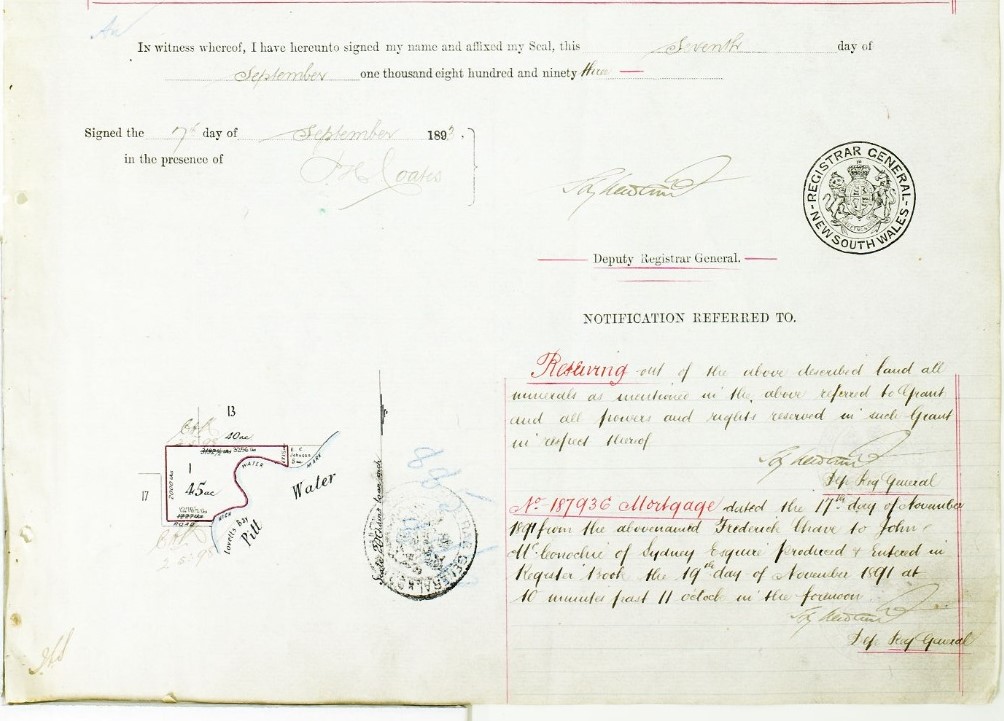 In witness whereof, I have hereunto signed my name and affixed my Seal, this Seventh day of
September one thousand eight hundred and ninety three
Signed the 7th day of September 1893.
in the presence of
J H Coates
REGISTRAR GENERAL
NEW SOUTH WALES
Deputy Registrar General.
NOTIFICATION REFERRED TO.
Reserving out of the above described land all
minerals as mentioned in the above referred to Grant
and all powers and rights reserved in such Grant
in respect thereof
Dep Reg General
No 187936 Mortgage dated the 17th day of November
1891 from the abovenamed Frederick Chave to John
McConochie of Sydney Esquire produced & Entered in
Register Book the 19th day of November 1891 at
10 minutes past 11 oclock in the forenoon
Dep Reg General
13
40ac
WATER
MARK
Water
17
1
45ac
ROAD
HIGH
Lovetts Bay
Pitt
Scale 20 Chains to an inch